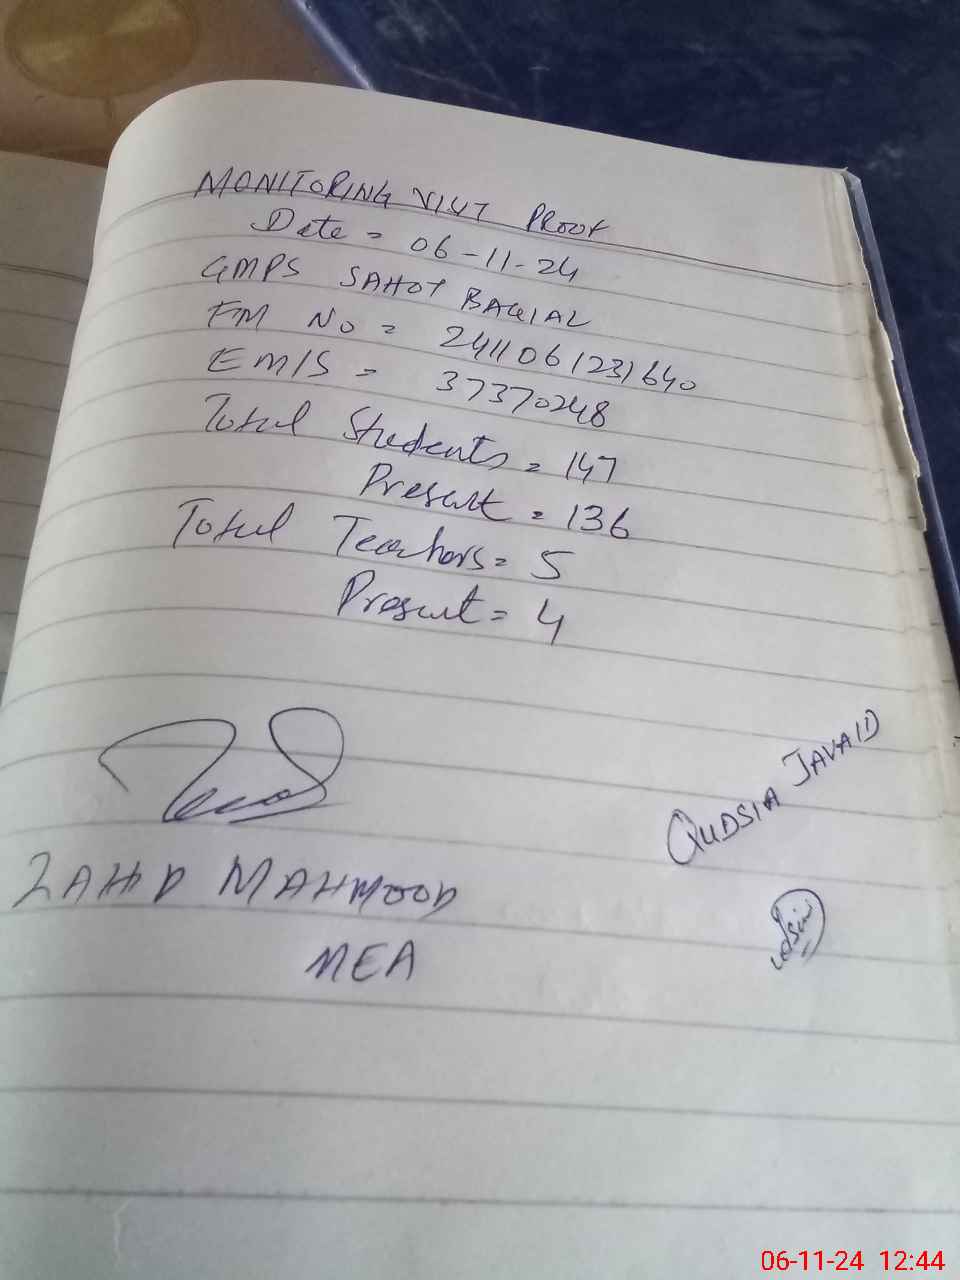 MONITORING VISIT PROOF
Date = 06-11-24
GMPS SAHOT BAGIAL
FM No = 2411061231640
EMIS = 37370248
Total Students = 147
Present = 136
Total Teachers = 5
Present = 4
QUDSIA JAVAID
ZAHID MAHMOOD
MEA
06-11-24 12:44